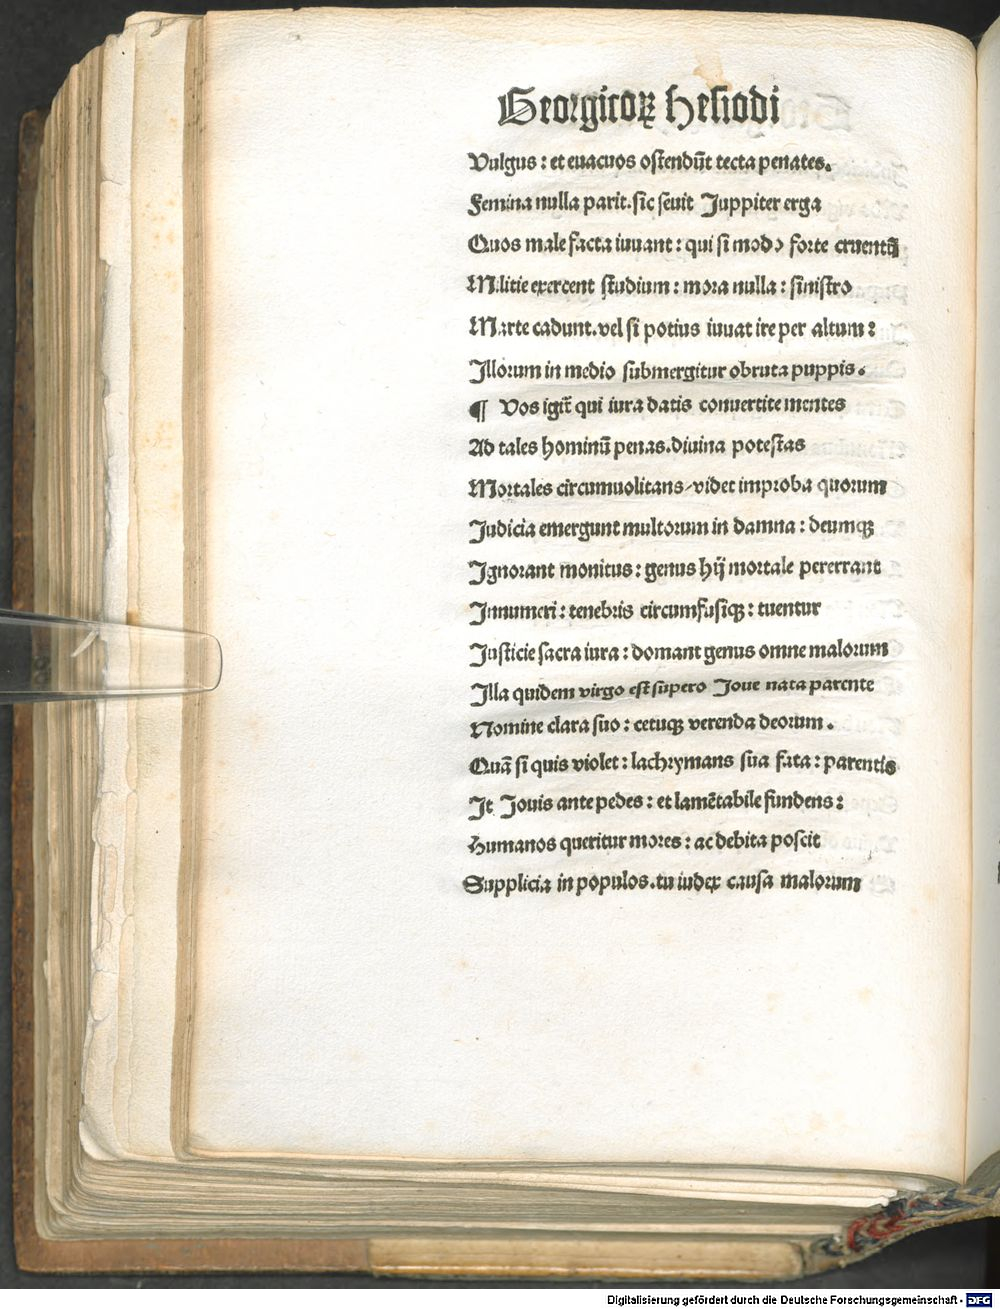 Georgicoꝝ Hesiodi
Vulgus : et euacuos ostendūt tecta penates.
Femina nulla parit. sic seuit Juppiter erga
Quos male facta iuuant : qui si modo forte cruentū
Militie exercent studium : mora nulla : sinistro
Marte cadunt. vel si potius iuuat ire per altum :
Illorum in medio submergitur obruta puppis.
¶ Vos igit̄ qui iura datis conuertite mentes
Ad tales hominū penas. diuina potestas
Mortales circumuolitans / videt improba quorum
Judicia emergunt multorum in damna : deumqꝫ
Ignorant monitus : genus hij mortale pererrant
Innumeri : tenebris circumfusiqꝫ : tuentur
Justicie sacra iura : domant genus omne malorum
Illa quidem virgo est supero Joue nata parente
Nomine clara suo : cetuqꝫ verenda deorum .
Quā si quis violet : lachrymans sua fata : parentis
It Jouis ante pedes : et lamētabile fundens :
Humanos queritur mores : ac debita poscit
Supplicia in populos. tu iudex causa malorum
Digitalisierung gefördert durch die Deutsche Forschungsgemeinschaft - DFG